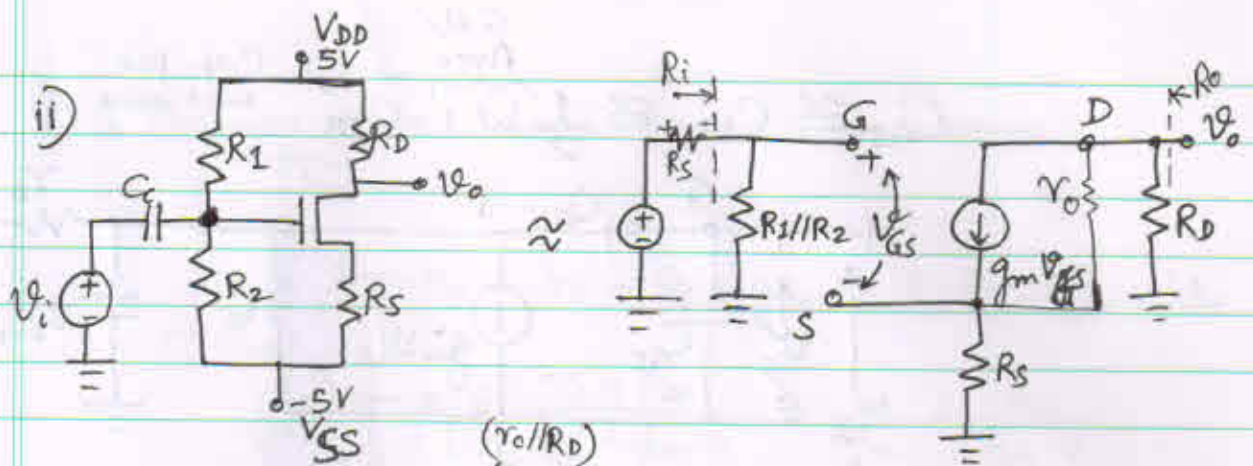 ii)
VDD
5V
R1
RD
Cc
vo
vi
R2
RS
-5V
VSS
≈
Ri
RS
R1//R2
G
+
VGS
-
S
gm vgs
RS
D
ro
RD
Ro
vo
(ro//RD)